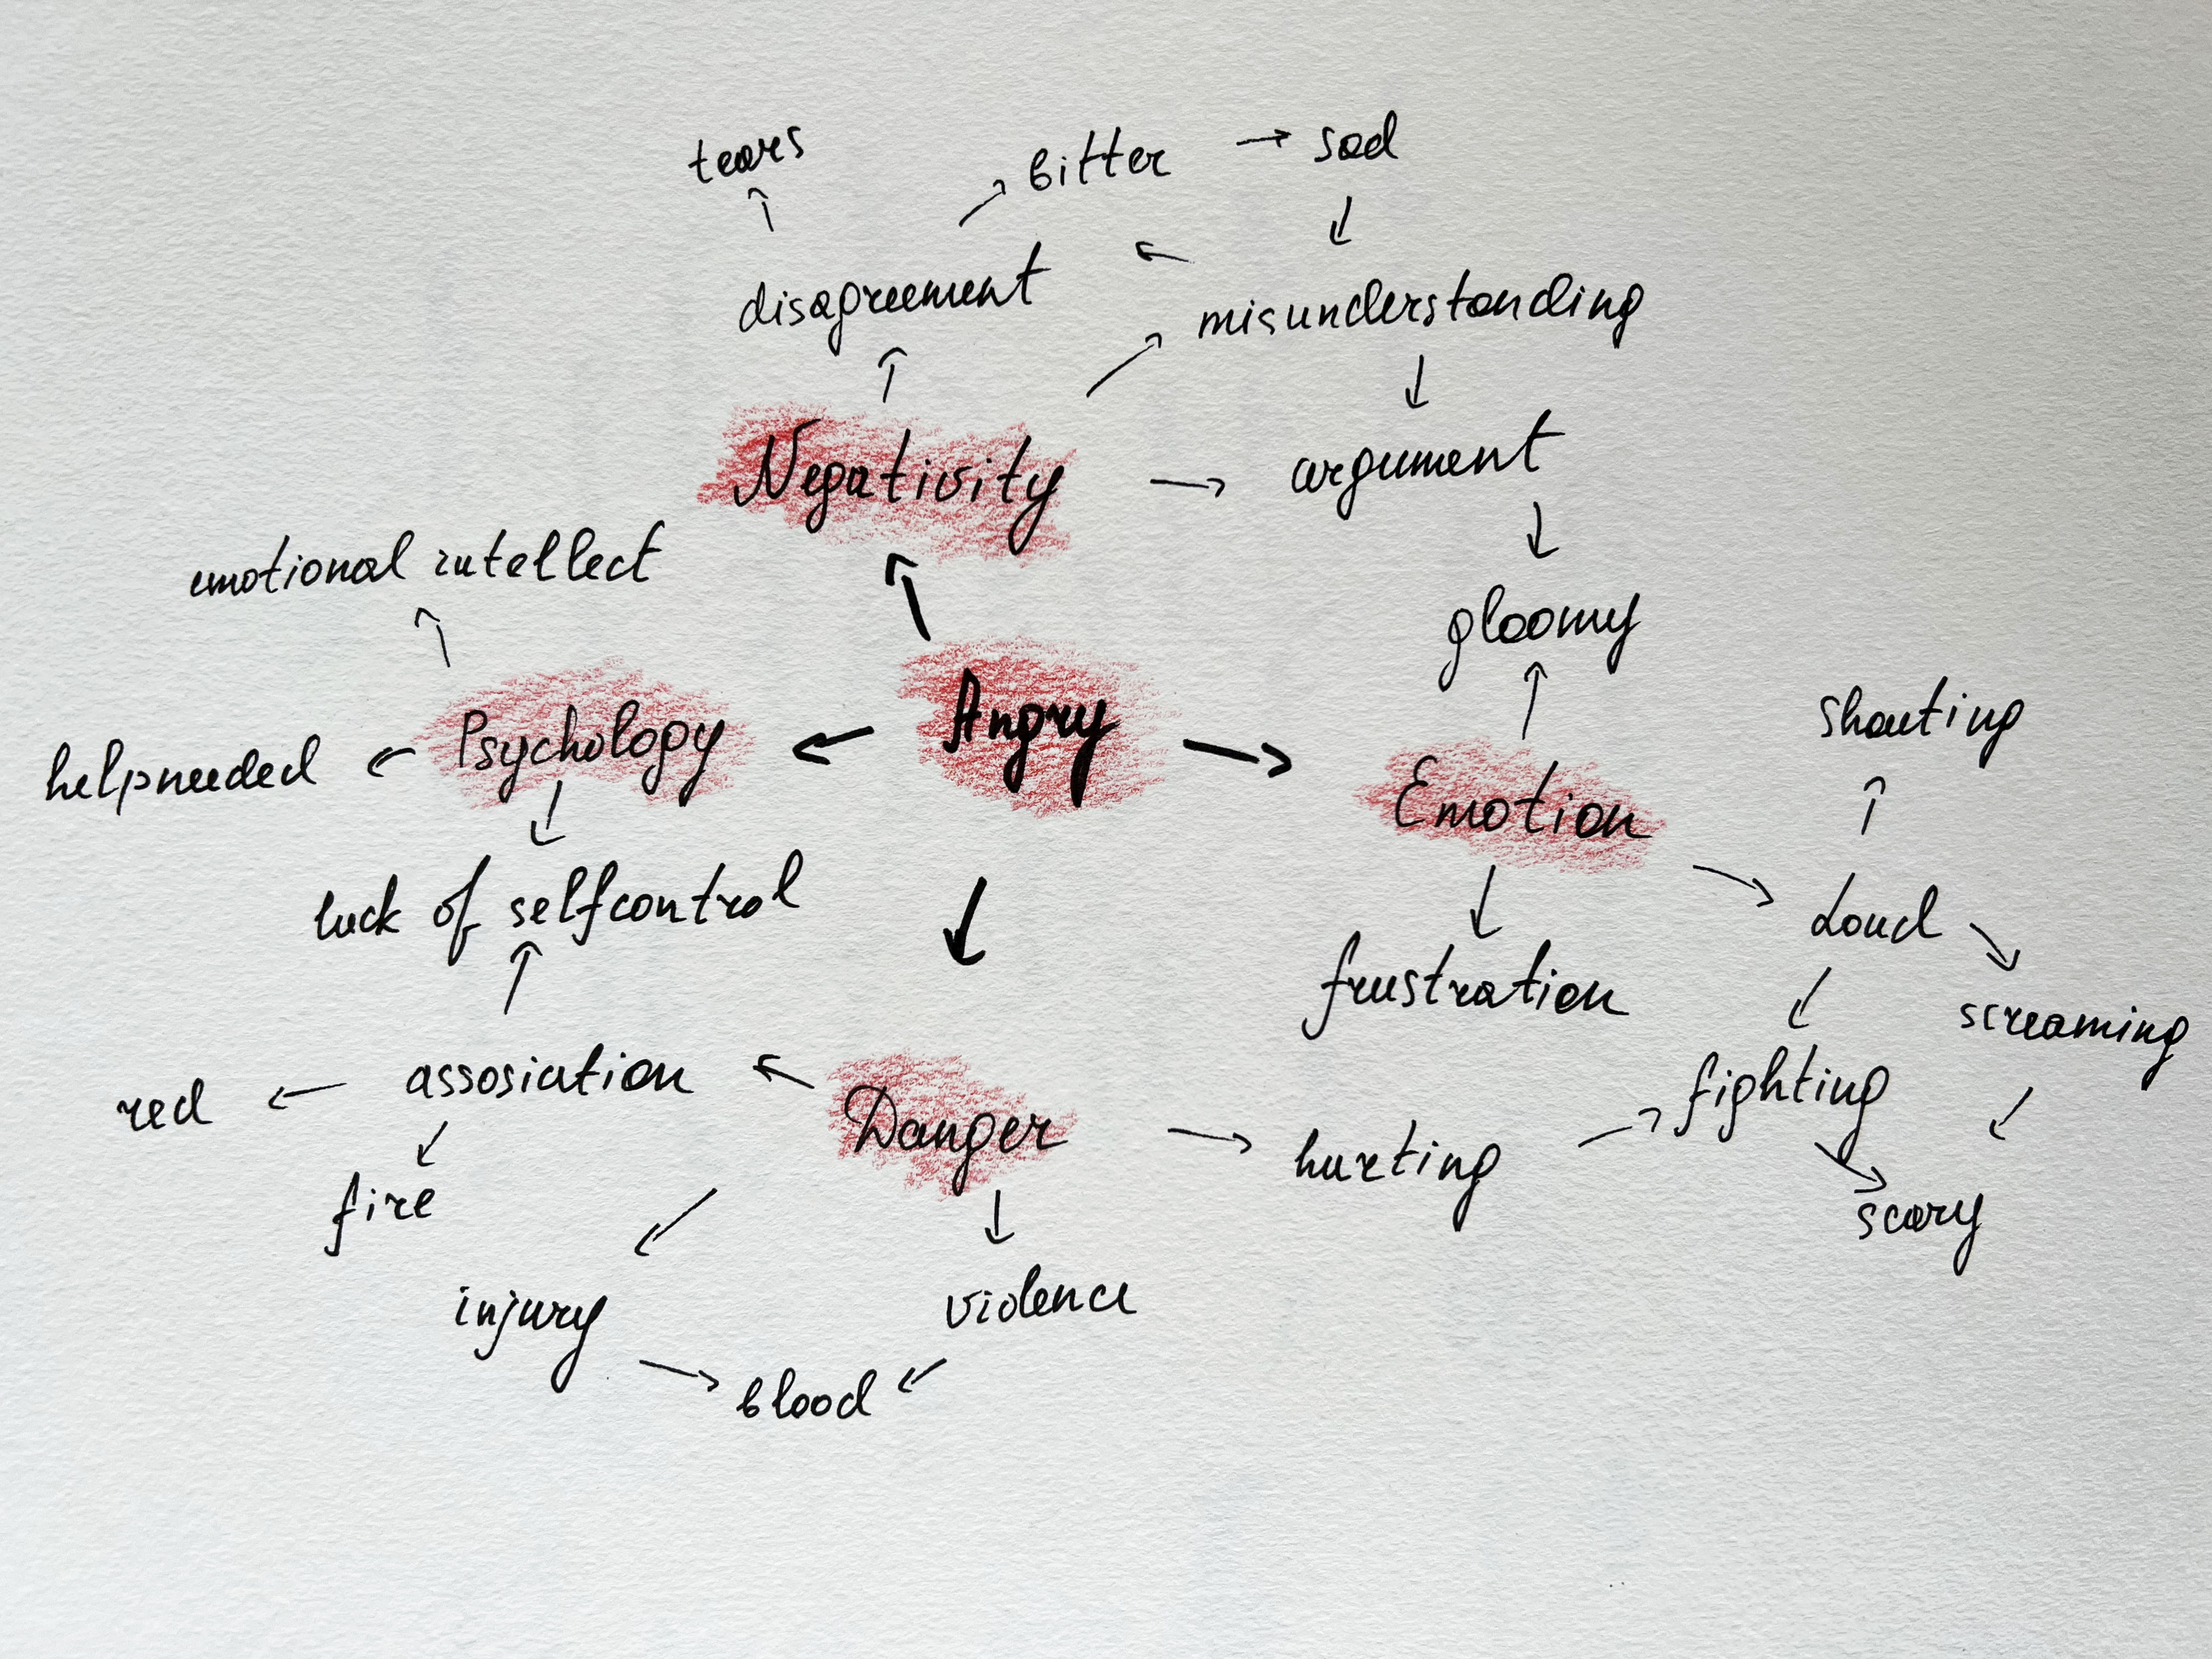 tears
bitter
sad
disagreement
misunderstanding
Negativity
argument
emotional intellect
gloomy
Angry
Psychology
helpneeded
Emotion
shouting
lack of selfcontrol
Loud
frustration
screaming
assosiation
red
Danger
fighting
hurting
fire
scary
injury
violence
blood